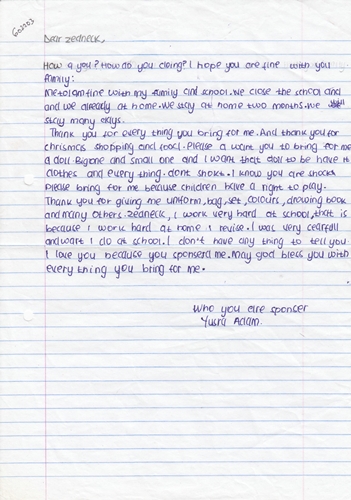 603703
Dear zedneck,
How a you? How do you doing? I hope you are fine with you
family:
Me to Iam fine with my family and school. We close the school and
and we already at home. We stay at home two months. We
stay many days.
Thank you for every thing you bring for me. And thank you for
chrismas shopping and food. Please a want you to bring for me
a doll. Big one and small one and I want that doll to be have it
clothes and every thing. dont shokt. I know you are shockt
Please bring for me because children have a right to play.
Thank you for giving me uniform, bag, set, colours, drowing book
and many others. zedneck, I work very hard at school, that is
because I work hard at home I revise. I was very cearfull
and wart I do at school. I don't have any thing to tell you
I love you because you sponserd me. May god bless you with
every thing you bring for me.
Who you are sponser
Yusra Adam.